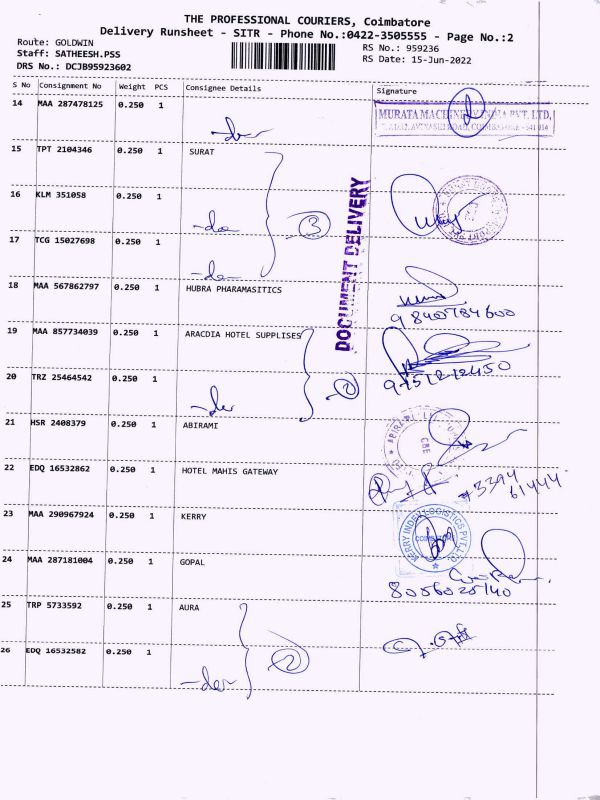 THE PROFESSIONAL COURIERS, Coimbatore
Delivery Runsheet - SITR - Phone No.:0422-3505555 - Page No.:2
Route: GOLDWIN
Staff: SATHEESH.PSS
DRS No.: DCJB95923602
RS No.: 959236
RS Date: 15-Jun-2022
S No Consignment No Weight PCS Consignee Details Signature
14 MAA 287478125 0.250 1
MURATA MACHINERY INDIA PVT. LTD,
AVINASHI ROAD, COIMBATORE - 641 014
-do-
15 TPT 2104346 0.250 1 SURAT
DOCUMENT DELIVERY
16 KLM 351058 0.250 1
-do- 3
17 TCG 15027698 0.250 1
-do-
18 MAA 567862797 0.250 1 HUBRA PHARAMASITICS
9840784600
19 MAA 857734039 0.250 1 ARACDIA HOTEL SUPPLISES
9751212450
20 TRZ 25464542 0.250 1
-do- 2
21 HSR 2408379 0.250 1 ABIRAMI
CBE
22 EDQ 16532862 0.250 1 HOTEL MAHIS GATEWAY
73394
61444
23 MAA 290967924 0.250 1 KERRY
KERRY INDEV LOGISTICS PVT. LTD.
24 MAA 287181004 0.250 1 GOPAL
8056025140
25 TRP 5733592 0.250 1 AURA
2
26 EDQ 16532582 0.250 1
-do-